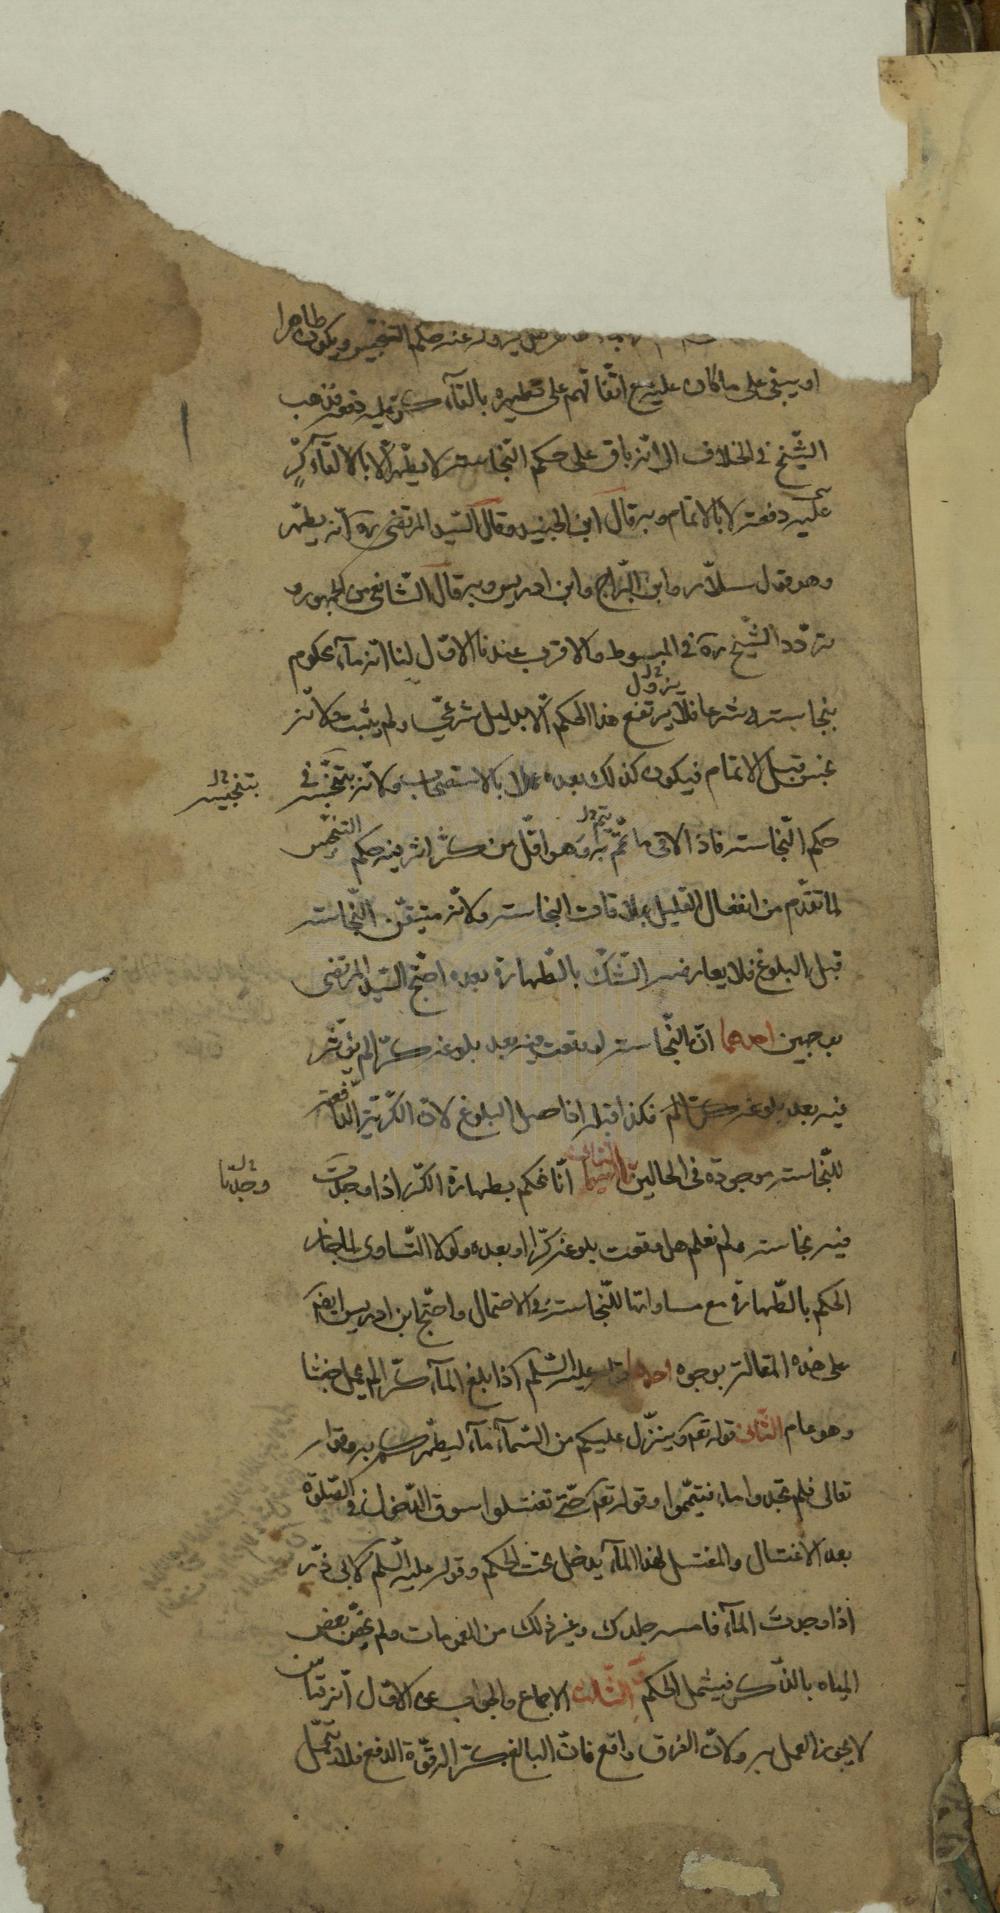 يزول عنه حكم التنجيس ويكون طاهرا
او يبقى على ما كان عليه مع اتفاقهم على تطهيره بالقآء كر عليه دفعة فذهب
الشّيخ في الخلاف الى انّه باق على حكم النّجاسة لا يطهر الا بالقآء كرٍّ
عليه دفعة لا بالاتمام وبه قال ابن الجنيد وقال السّيد المرتضى ره انّه يطهر
وهو قول سلّار وابن البّراج وابن ادريس وبه قال الشّافعي من الجمهور و
تردّد الشّيخ ره في المبسوط والاقرب عندنا الاوّل لنا انّه مآء محكوم
يزول
بنجاسته شرعا فلا يرتفع هذا الحكم الّا بدليل شرعيّ ولم يثبت ولانّه
نجس قبل الاتمام فيكون كذلك بعده عملا بالاستصحاب ولانّه يتنجّس في
بتنجيسه
حكم النّجاسة فاذا لاقى ما تمّم به وهو اقلّ من كرّ اثر فيه حكم التنجيس
لما تقدّم من انفعال القليل بملاقات النجاسة ولانّه متيقّن النّجاسة
قبل البلوغ فلا يعارضه الشّكّ بالطّهارة بعده احتجّ السّيد المرتضى
بوجهين احدهما انّ النّجاسة لو وقعت فيه بعد بلوغه كرّا لم يؤثّر
فيه بعد بلوغه كرّا لم فكذا قبله اذا حصل البلوغ لانّ الكرّيّة الدّافعة
للنّجاسة موجودة في الحالين الثاني انّا نحكم بطهارة الكرّ اذا وجدت
وجدنا
فيه نجاسة ولم نعلم هل وقعت بلوغه كرّا او بعده ولولا التّساوى لما جاز
الحكم بالطّهارة مع مساواتها للنّجاسة في الاحتمال واحتجّ ابن ادريس ايضا
على هذه المقالة بوجوه احدها قوله عليه السّلم اذا بلغ المآء كرّا لم يحمل خبثا
وهو عام الثّانى قوله تعم وينزّل عليكم من السّمآء مآء ليطهّركم به وقوله
تعالى فلم تجدوا ماء فتيمّموا وقوله تعم حتّى تغتسلوا سوق الدّخول في الصّلوة
بعد الاغتسال والمغتسل بهذا المآء يدخل تحت الحكم وقوله عليه السّلم لابى ذرّ
اذا وجدت المآء فامسه جلدك وغير ذلك من العمومات ولم يخصّ بعض
المياه بالذّكر فيشمل الحكم الثّالث الاجماع والجواب عن الاوّل انّه قياس
لا يجوز العمل به ولانّ الفرق واقع فانّ البالغ كرّا له قوّة الدفع فلا يتحمّل